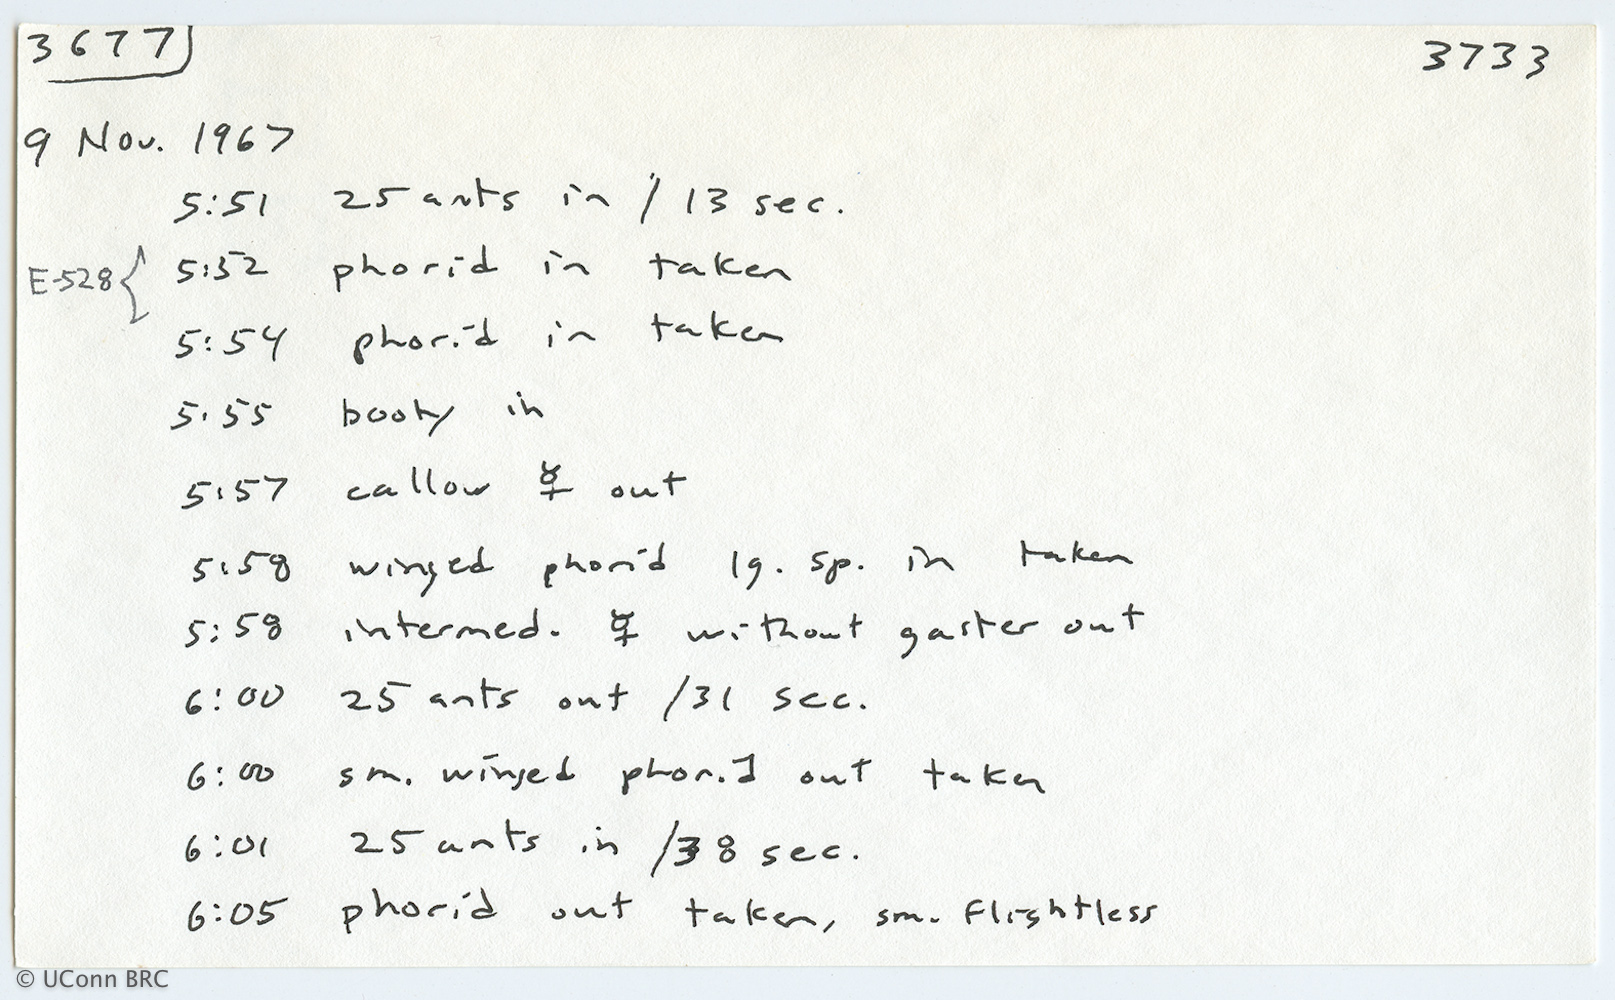 3677 3733
9 Nov. 1967
5:51 25 ants in / 13 sec.
E-528 { 5:52 phorid in taken
5:54 phorid in taken
5:55 booty in
5:57 callow ☿ out
5:58 winged phorid lg. sp. in taken
5:58 intermed. ☿ without gaster out
6:00 25 ants out /31 sec.
6:00 sm. winged phorid out taken
6:01 25 ants in /38 sec.
6:05 phorid out taken, sm. flightless
© UConn BRC